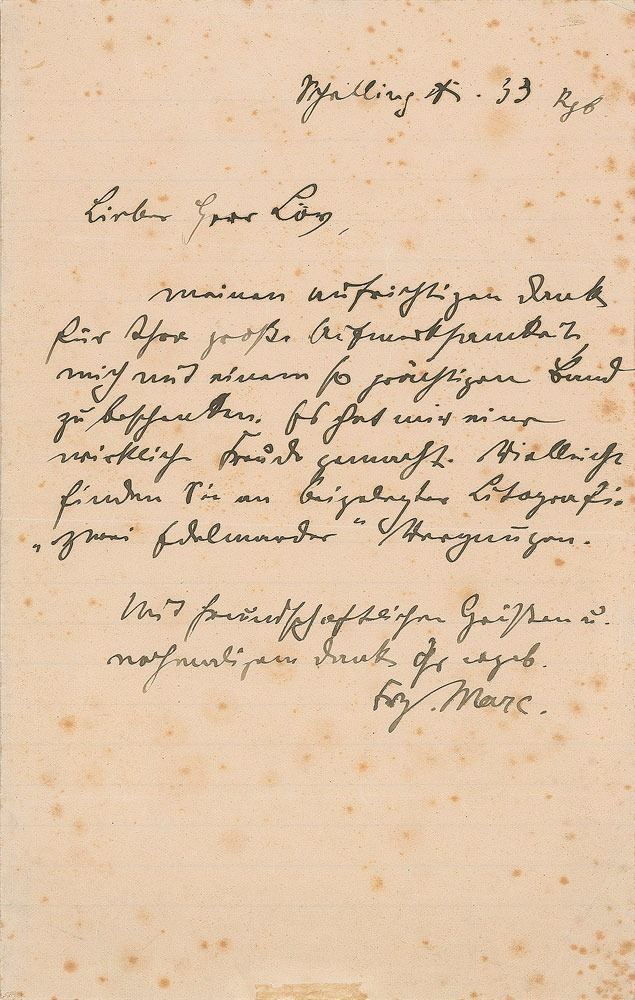 Schellingstr. 33 Rgb
Lieber Herr Löv,
meinen aufrichtigen Dank
für Ihre große Aufmerksamkeit,
mich mit einem so prächtigen Band
zu beschenken. Es hat mir eine
wirkliche Freude gemacht. Vielleicht
finden Sie an beigelegter Litografie
„zwei Edelmarder" Vergnügen.
Mit freundschaftlichen Grüßen u.
nochmaligem Dank Ihr ergeb.
Frz. Marc.